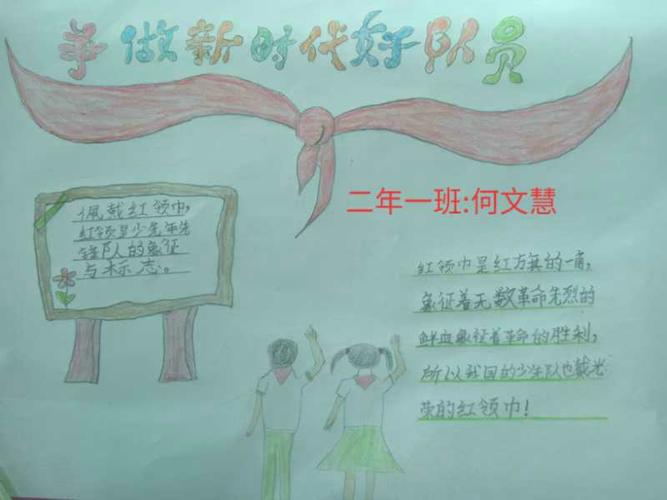 争做新时代好队员
二年一班:何文慧
佩戴红领巾,
红领是少先年先
锋队的象征
与标志。
红领巾是红方旗的一角,
象征着无数革命先烈的
鲜血象征着革命的胜利,
所以我国的少年队也戴光
荣的红领巾!